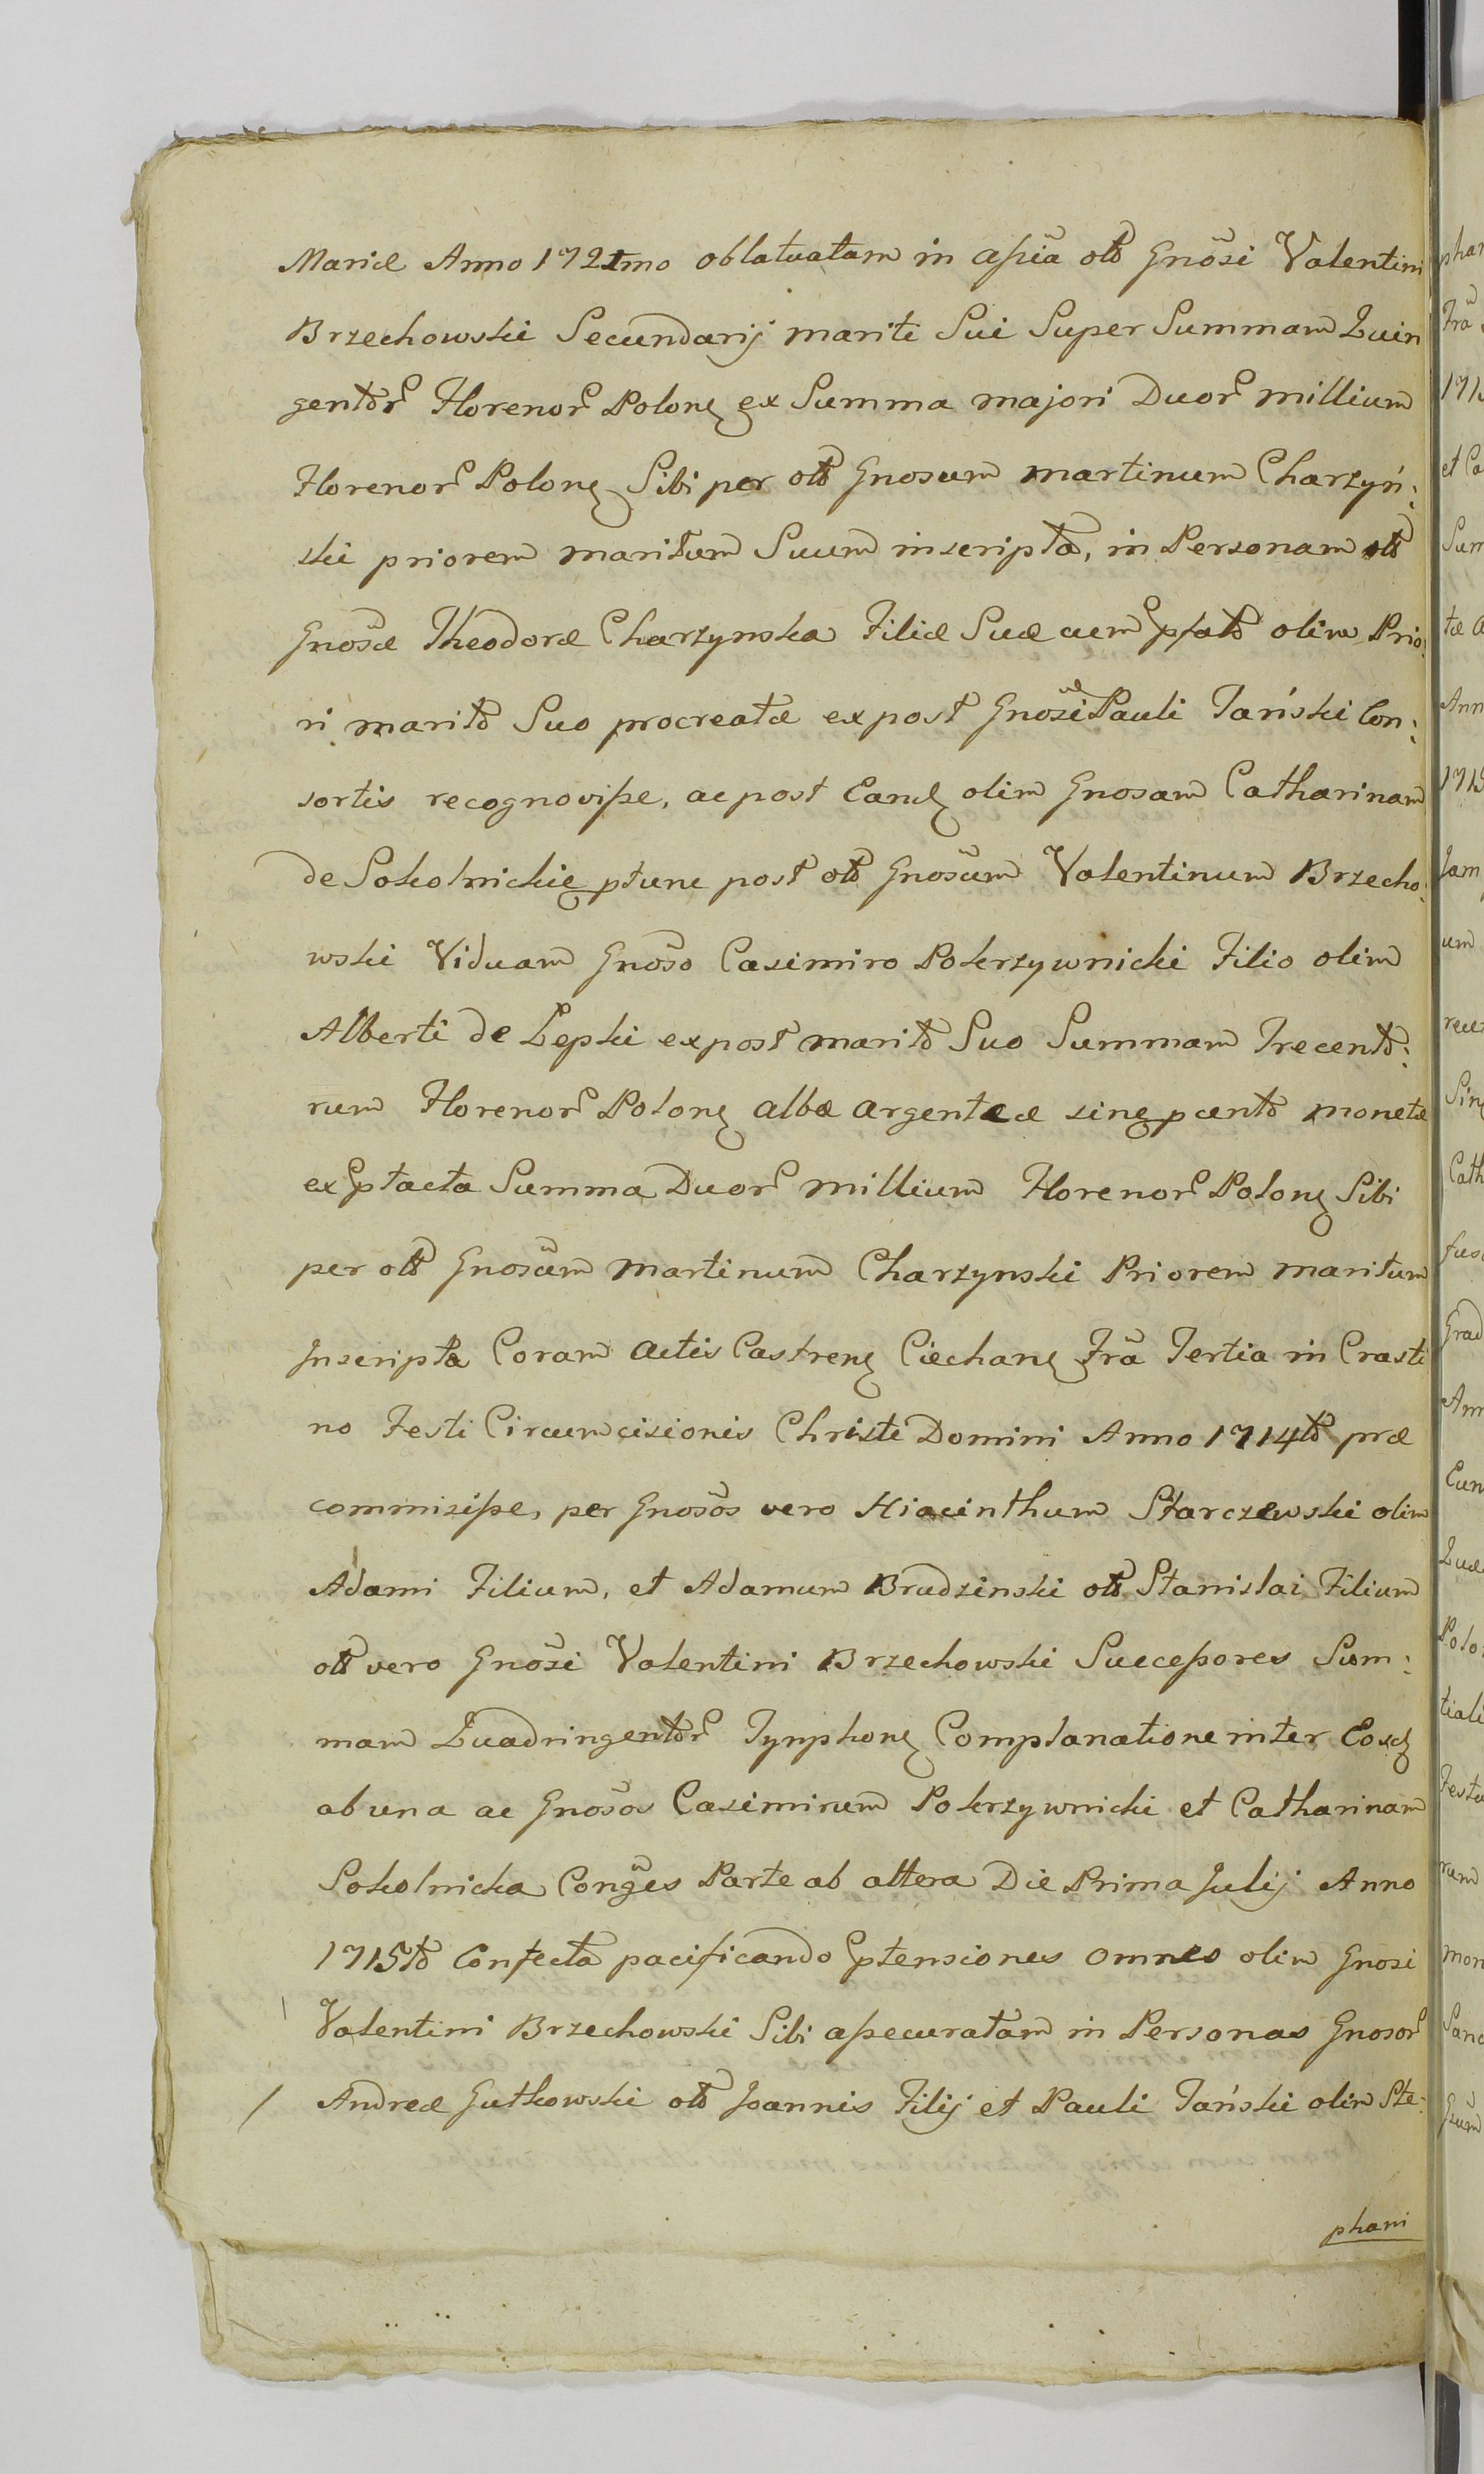 Mariæ Anno 1721mo oblatuatam in assia olt Gnosi Valentini
Brzechowski Secundarij mariti Sui Super Summam Quin
gentor Florenor Polon ex Summa majori Duor millium
Florenor Polon Sibi per olt Gnosum Martinum Charzyń:
ski priorem maritum Suum inscripta, in Personam olt
Gnosæ Theodoræ Charzynska Filiæ Suæ cum pfato olim Prio:
ri marito Suo procreatæ ex post Gnosi Pauli Tański Con:
sortis recognovisse, ac post Eand olim Gnosam Catharinam
de Sokolnickie ptunc post olt Gnosum Valentinum Brzecho:
wski Viduam Gnoso Casimiro Pokrzywnicki Filio olim
Alberti de Lepki ex post marito Suo Summam Trecento:
rum Florenor Polon albæ argenteæ sine pcento monetæ
ex ptacta Summa Duor millium Florenor Polon Sibi
per olt Gnosum Martinum Charzynski Priorem maritum
Inscripta Coram Actis Castren Ciechan Fra Tertia in Crasti
no Festi Circumcisionis Christi Domini Anno 1714to præ
commisisse, per Gnosos vero Hiacinthum Starczewski olim
Adami Filium, et Adamum Brudzinski olt Stanislai Filium
olt vero Gnosi Valentini Brzechowski Successores Sum:
mam Quadringentor Tynphon Complanatione inter Eosd
ab una ac Gnosos Casimirum Pokrzywnicki et Catharinam
Sokolnicka Conges Parte ab altera Die Prima Julij Anno
1715to Confecta pacificando ptensiones omnes olim Gnosi
Valentini Brzechowski Sibi assecuratam in Personas Gnosor
/ Andreæ Gutkowski olt Joannis Filij et Pauli Tański olim Ste:
phani